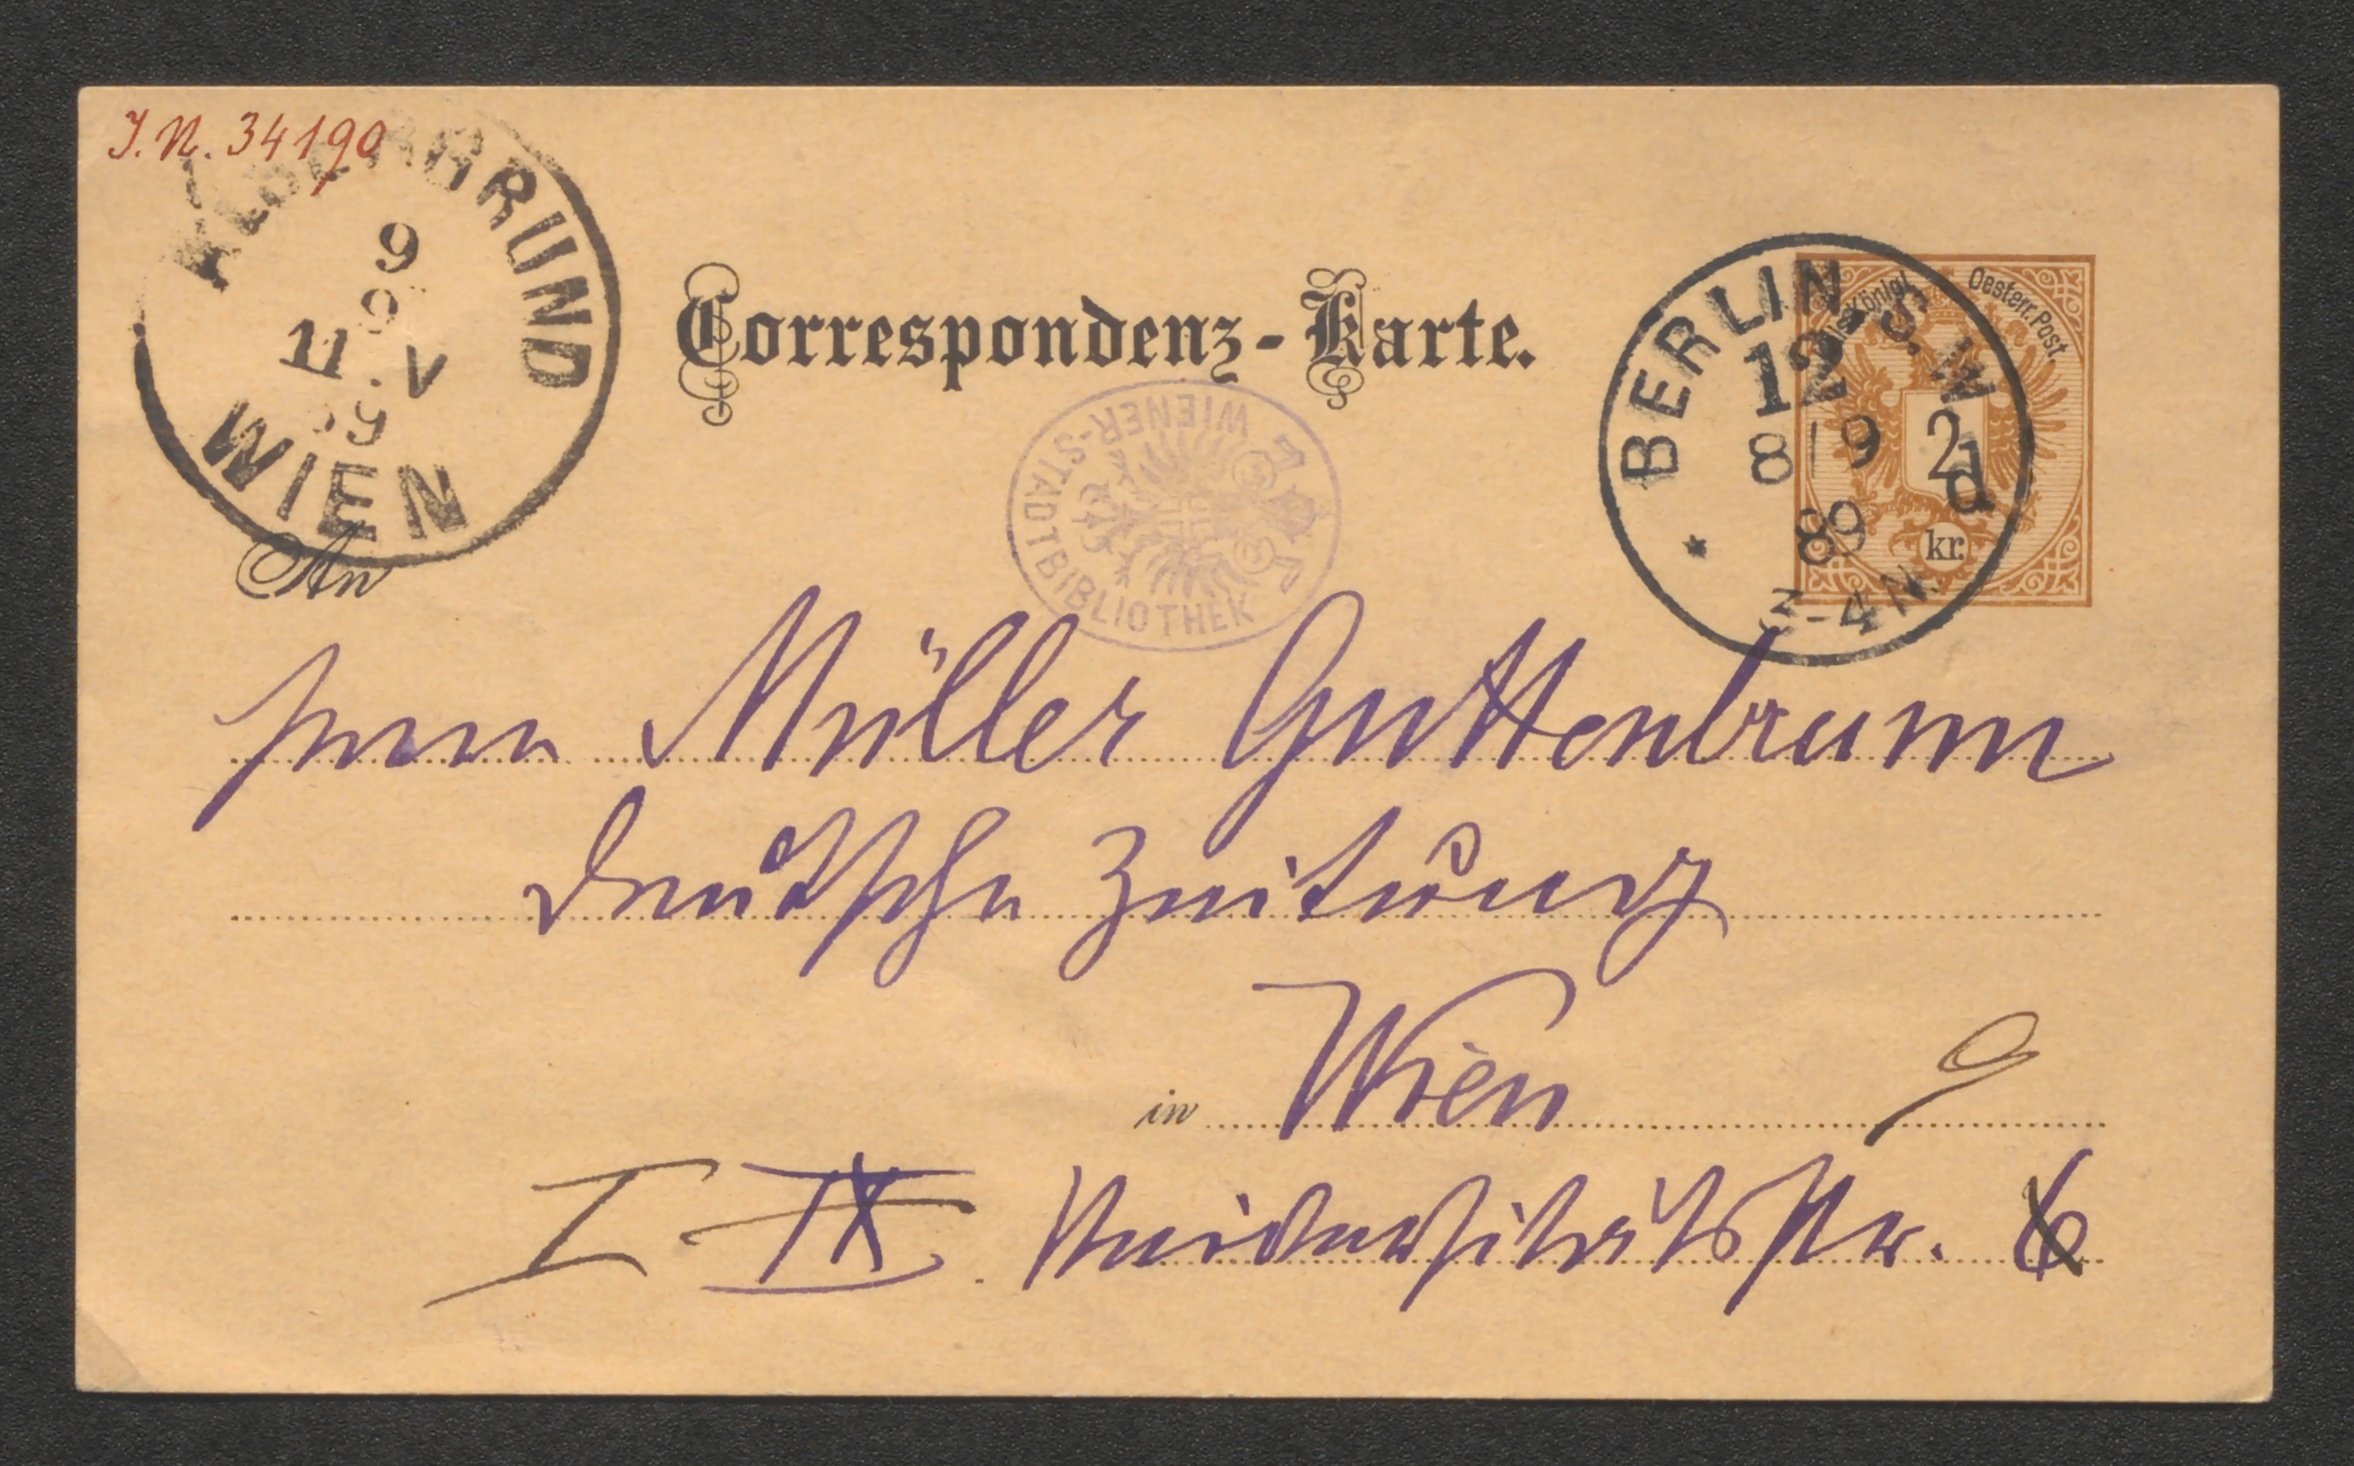 J.N. 34190
ALSERGRUND
9
9
11.V
89
WIEN
Correspondenz-Karte.
WIENER-STADTBIBLIOTHEK
Königl. Oesterr. Post.
2
kr.
BERLIN, S.W
12
8/9
89
d
3-4N.
An
Herrn Müller Guttenbrunn
Deutsche Zeitung
in Wien 9
I IX. Universitätsstr. 6